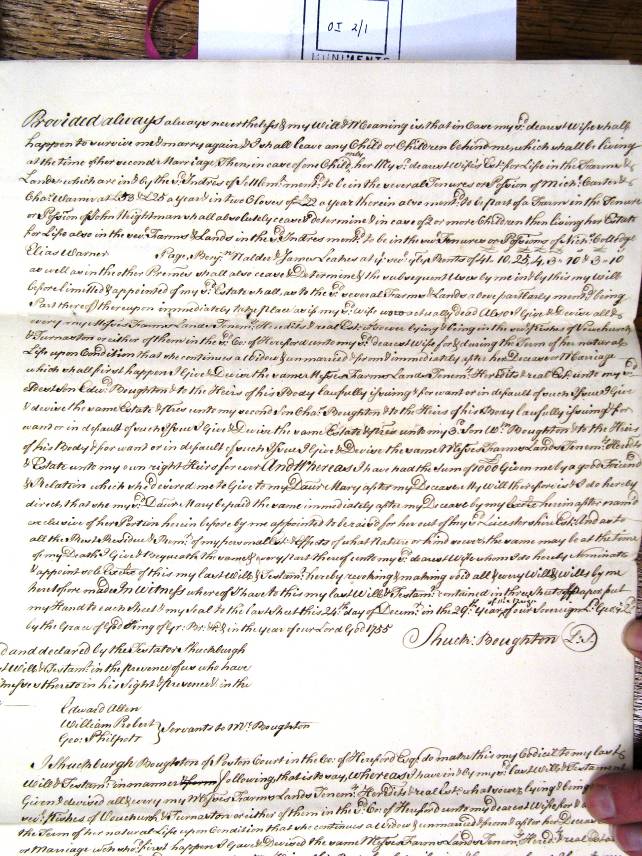 OI 2/1
MUNIMENTS
Provided always always nevertheless & my Will & Meaning is, that in Case my sd. dearest Wife shall
happen to survive me & marry again & I shall leave any Child or Children behind me, which shall be living
at the time of her second Marriage Then, in case of one Child only her My sd. dearest Wife's Est: for Life in the Farms &
Lands which are in & by the sd. Indres of Settlemt. mentd. to be in the several Tenures or Possion of Mich: Carter &
Chas. Warner at £53 & £25 a year & in two Closes of £22 a year therein also mentd. to be part of a Farm in the Tenure
or Possion of John Wightman shall absolutely cease & determine & in case of 2 or more Children then living her Estate
for Life also in the sevl. Farms & Lands in the sd. Indres mentd. to be in the sevl. Tenures or Possions of Nichs. Colledge
Elias Warner Page, Benjn. Nalder & James Leatus at ye. sevl. yrly Rents of 41. 10. 25, 4, 3 - 10 & 3 - 10
as well as in the other Premes shall also cease & Determine & the subsequent Uses by me in & by this my Will
before limitted & appointed of my sd. Estate shall, as to the sd. several Farms & Lands above partlarly mentd. being
Part thereof thereupon immediately take place as if my sd. wife was actually dead Also I Give & Devise all &
every my Messes Farms Lands Tenemts. Heredits & real Est: lying & being in the sevl. Pishes of Vowchurch
& Turnaston or either of them in the sd. Co: of Hereford unto my sd. dearest Wife for & during the Term of her natural
Life upon Condition that she continues a Widow & unmarried & from & immediately after her Decease or Marriage
which shall first happen I Give & Devise the same Messes Farms Lands Tenemts. Heredits & real Est: unto my sd.
Son Edwd. Boughton & to the Heirs of his Body lawfully issuing & for want or in default of such Issue I Give
& devise the same Estate & Pres unto my second Son Chas. Boughton & to the Heirs of his Body lawfully issuing & for
want or in default of such Issue I Give & Devise the same Estate & Pres unto my 3d. Son Wm. Boughton & to the Heirs
of his Body & for want or in default of such Issue I Give & Devise the same Messes Farms Lands Tenemts. Heredits
& Estate unto my own right Heirs for ever And Whereas I have had the Sum of £1000 Given me by a good Friend
& Relation which she desired me to Give to my Daur. Mary after my Decease My Will therefore is & I do hereby
direct, that she my sd. Daur. Mary be paid the same immediately after my Decease by my Extrix hereinafter named
exclusive of her Portion herein before by me appointed to be raised for her out of my sd. Leicestershire Est: And as to
all the Rest Residue & Remr. of my personal Est: & Effects of what Nature or kind soever the same may be at the time
of my Death I Give & Bequeath the same & every Part thereof unto my sd. dearest Wife whom I do hereby Nominate
& appoint sole Extrix of this my last Will & Testamt. hereby revoking & making void all & every Will & Wills by me
heretofore made In Witness whereof I have to this my last Will & Testamt. contained in three sheets of paper, put
my Hand to each Sheet & my Seal to the last Sheet this 24th. day of Decemr. in the 29th. Year of the Reign of our Sovereign Ld. Geo: 2d.
by the Grace of God King of Gr: Brit: & in the year of our Lord God 1755
Shuck: Boughton L.S.
d and declared by the Testator Shuckburgh
t Will & Testamt. in the presence of us who have
itnesses thereto in his Sight & presence & in the
Edward Allen
William Probert
Geo: Philpott
Servants to Mr. Boughton
I Shuckburgh Boughton of Poston Court in the Co: of Hereford Esqr. do make this my Codicil to my last
Will & Testamt. in manner following, that is to say, Whereas I have in & by my sd. last Will & Testament
Given & devised all & every my Messes Farms Lands Tenemts. Heredits & real Est: whatsoever lying & being
sevl. Pishes of Vowchurch & Turnaston or either of them in the sd. Co: of Hereford unto my dearest Wife for &
the Term of her natural Life upon Condition that she continues a Widow & unmarried & from & after her Decease
or Marriage wch. shod. first happen I Gave & Devised the same Messes Farms Lands Tenemts. Heredits & real